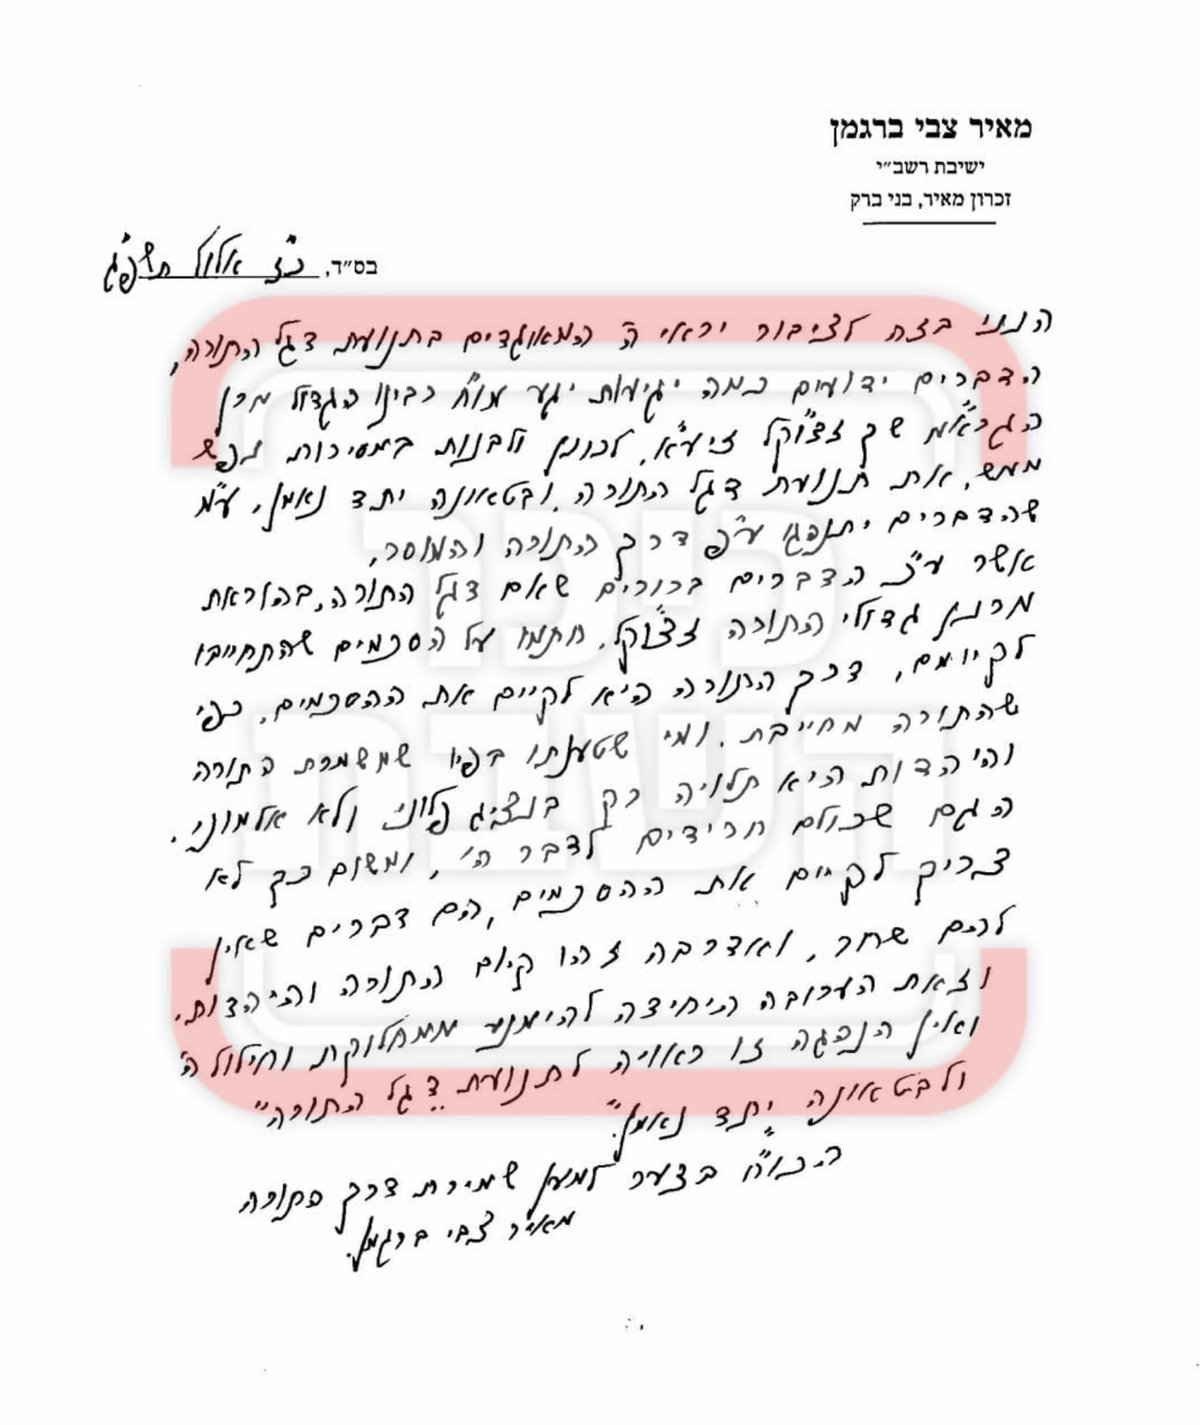 מאיר צבי ברגמן
ישיבת רשב״י
זכרון מאיר, בני ברק
בס״ד, כ״ז אלול תשפ״ג
הנני בזה לציבור יראי ה׳ המאוגדים בתנועת דגל התורה,
הדברים ידועים כמה יגיעות יגע מו״ח רבינו הגדול מרן
הגרא״מ שך זצוק״ל זיע״א, לכונן ולבנות במסירות נפש
ממש, את תנועת דגל התורה, ובטאונה יתד נאמן, ע״מ
שהדברים יתנהגו ע״פ דרך התורה והמוסר,
אשר ע״כ הדברים ברורים שאם דגל התורה, בהוראת
מרנן גדולי התורה זצוק״ל, חתמו על הסכמים שהתחייבו
לקיומם, דרך התורה היא לקיים את ההסכמים, כפי
שהתורה מחייבת, ומי שטענתו בפיו שמשמרת התורה
והיהדות היא תלויה רק בנציג פלוני ולא אלמוני,
הגם שכולם חרידים לדבר ה׳, ומשום כך לא
צריך לקיים את ההסכמים, הם דברים שאין
להם שחר, ואדרבה זהו קיום התורה והיהדות,
וזאת הערובה היחידה להימנע ממחלוקת וחילול ה׳
ואין הנהגה זו ראויה לתנועת ״דגל התורה״
ולבטאונה ״יתד נאמן״.
הכו״ח בצער למען שמירת דרך התורה
מאיר צבי ברגמן.
כיכר
השבת